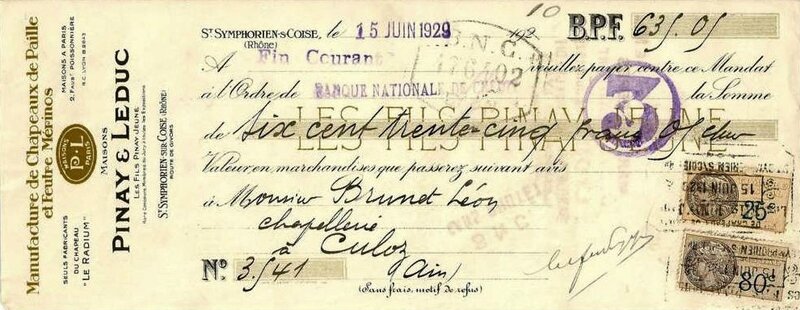 Manufacture de Chapeaux de Paille
et Feutre Mérinos
MAISONS A PARIS
2, Faubg POISSONNIÈRE
MAISONS
P&L
PARIS
SEULS FABRICANTS
DU CHAPEAU
"LE RADIUM"
MAISONS
PINAY & LEDUC
LES FILS PINAY-JEUNE
ST SYMPHORIEN-SUR-COISE (RHÔNE)
ROUTE DE GIVORS
ST SYMPHORIEN-S-COISE, le 15 JUIN 1929 192
(Rhône)
10
B.P.F. 635.05
Fin Courant
B.N.C.
176402
A veuillez payer contre ce Mandat
à l'Ordre de BANQUE NATIONALE DE la Somme
3
LES FILS PINAY JEUNE
de Six cent trente-cinq francs 05
Valeur, en marchandises que passerez suivant avis
à Monsieur Brunet Léon
chapellerie
à Culoz
(Ain)
No 3.541
(Sans frais, motif de refus)
25c
80c